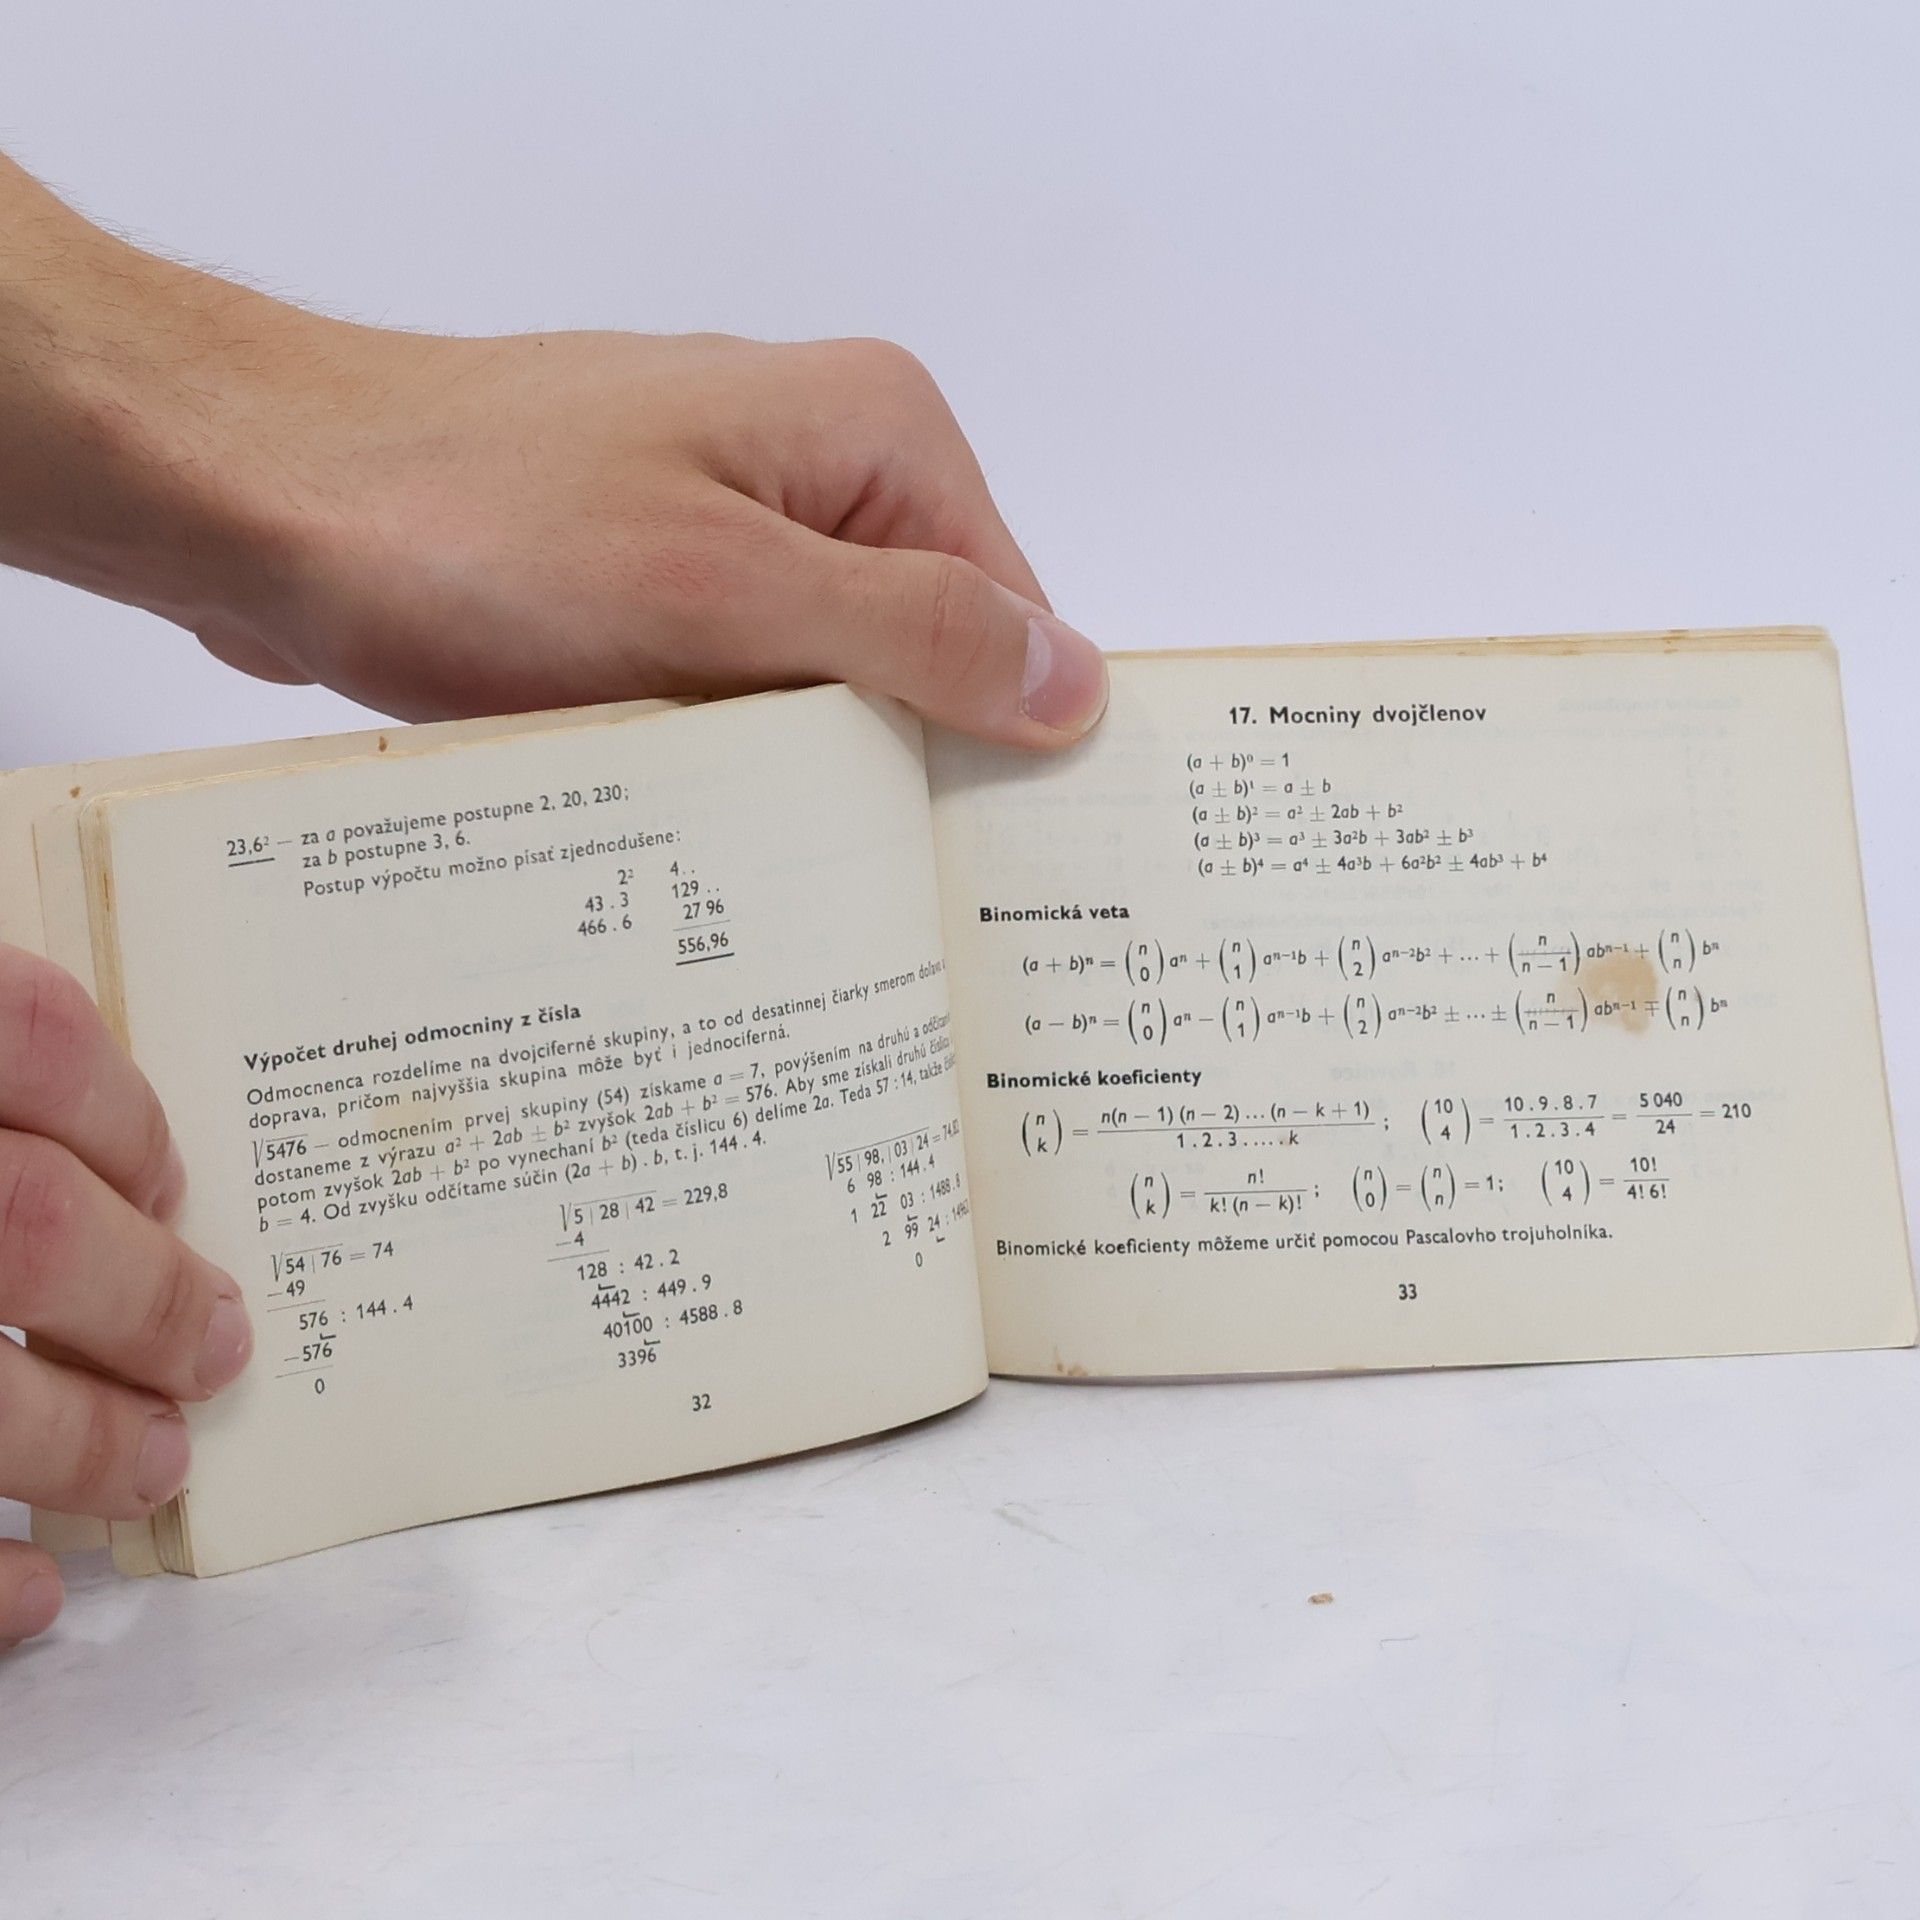 23,6² — za a považujeme postupne 2, 20, 230;
za b postupne 3, 6.
Postup výpočtu možno písať zjednodušene:
2² 4..
43 . 3 129 ..
466 . 6 27 96
556,96
Výpočet druhej odmocniny z čísla
Odmocnenca rozdelíme na dvojciferné skupiny, a to od desatinnej čiarky smerom doľava
doprava, pričom najvyššia skupina môže byť i jednociferná.
√5476 — odmocnením prvej skupiny (54) získame a = 7, povýšením na druhú a
dostaneme z výrazu a² + 2ab ± b² zvyšok 2ab + b² = 576. Aby sme získali druhú
potom zvyšok 2ab + b² po vynechaní b² (teda číslicu 6) delíme 2a. Teda 57 : 14, takže
b = 4. Od zvyšku odčítame súčin (2a + b) . b, t. j. 144 . 4.
√54 | 76 = 74
−49
576 : 144 . 4
−576
0
√5 | 28 | 42 = 229,8
−4
128 : 42 . 2
4442 : 449 . 9
40100 : 4588 . 8
3396
√55 | 98, | 03 | 24 = 74,82
6 98 : 144.4
1 22 03 : 1488.8
2 99 24 :
0
32
17. Mocniny dvojčlenov
(a + b)⁰ = 1
(a ± b)¹ = a ± b
(a ± b)² = a² ± 2ab + b²
(a ± b)³ = a³ ± 3a²b + 3ab² ± b³
(a ± b)⁴ = a⁴ ± 4a³b + 6a²b² ± 4ab³ + b⁴
Binomická veta
(a + b)ⁿ = (n 0) aⁿ + (n 1) aⁿ⁻¹b + (n 2) aⁿ⁻²b² + ... + (n n − 1) abⁿ⁻¹ + (n n) bⁿ
(a − b)ⁿ = (n 0) aⁿ − (n 1) aⁿ⁻¹b + (n 2) aⁿ⁻²b² ± ... ± (n n − 1) abⁿ⁻¹ ∓ (n n) bⁿ
Binomické koeficienty
(n k) = n(n − 1) (n − 2) ... (n − k + 1) / 1 . 2 . 3 ..... k ; (10 4) = 10 . 9 . 8 . 7 / 1 . 2 . 3 . 4 = 5 040 / 24 = 210
(n k) = n! / k! (n − k)! ; (n 0) = (n n) = 1; (10 4) = 10! / 4! 6!
Binomické koeficienty môžeme určiť pomocou Pascalovho trojuholníka.
33